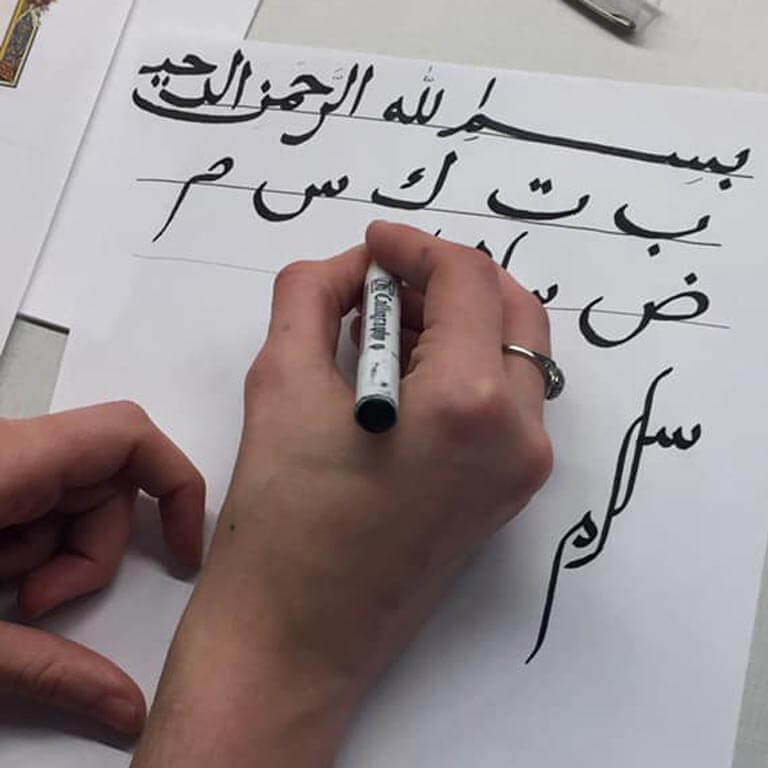 بِسِمِ لله الرَّحمَن الرحيم
ب ت ك س م
ض
سلام
Calligraphy